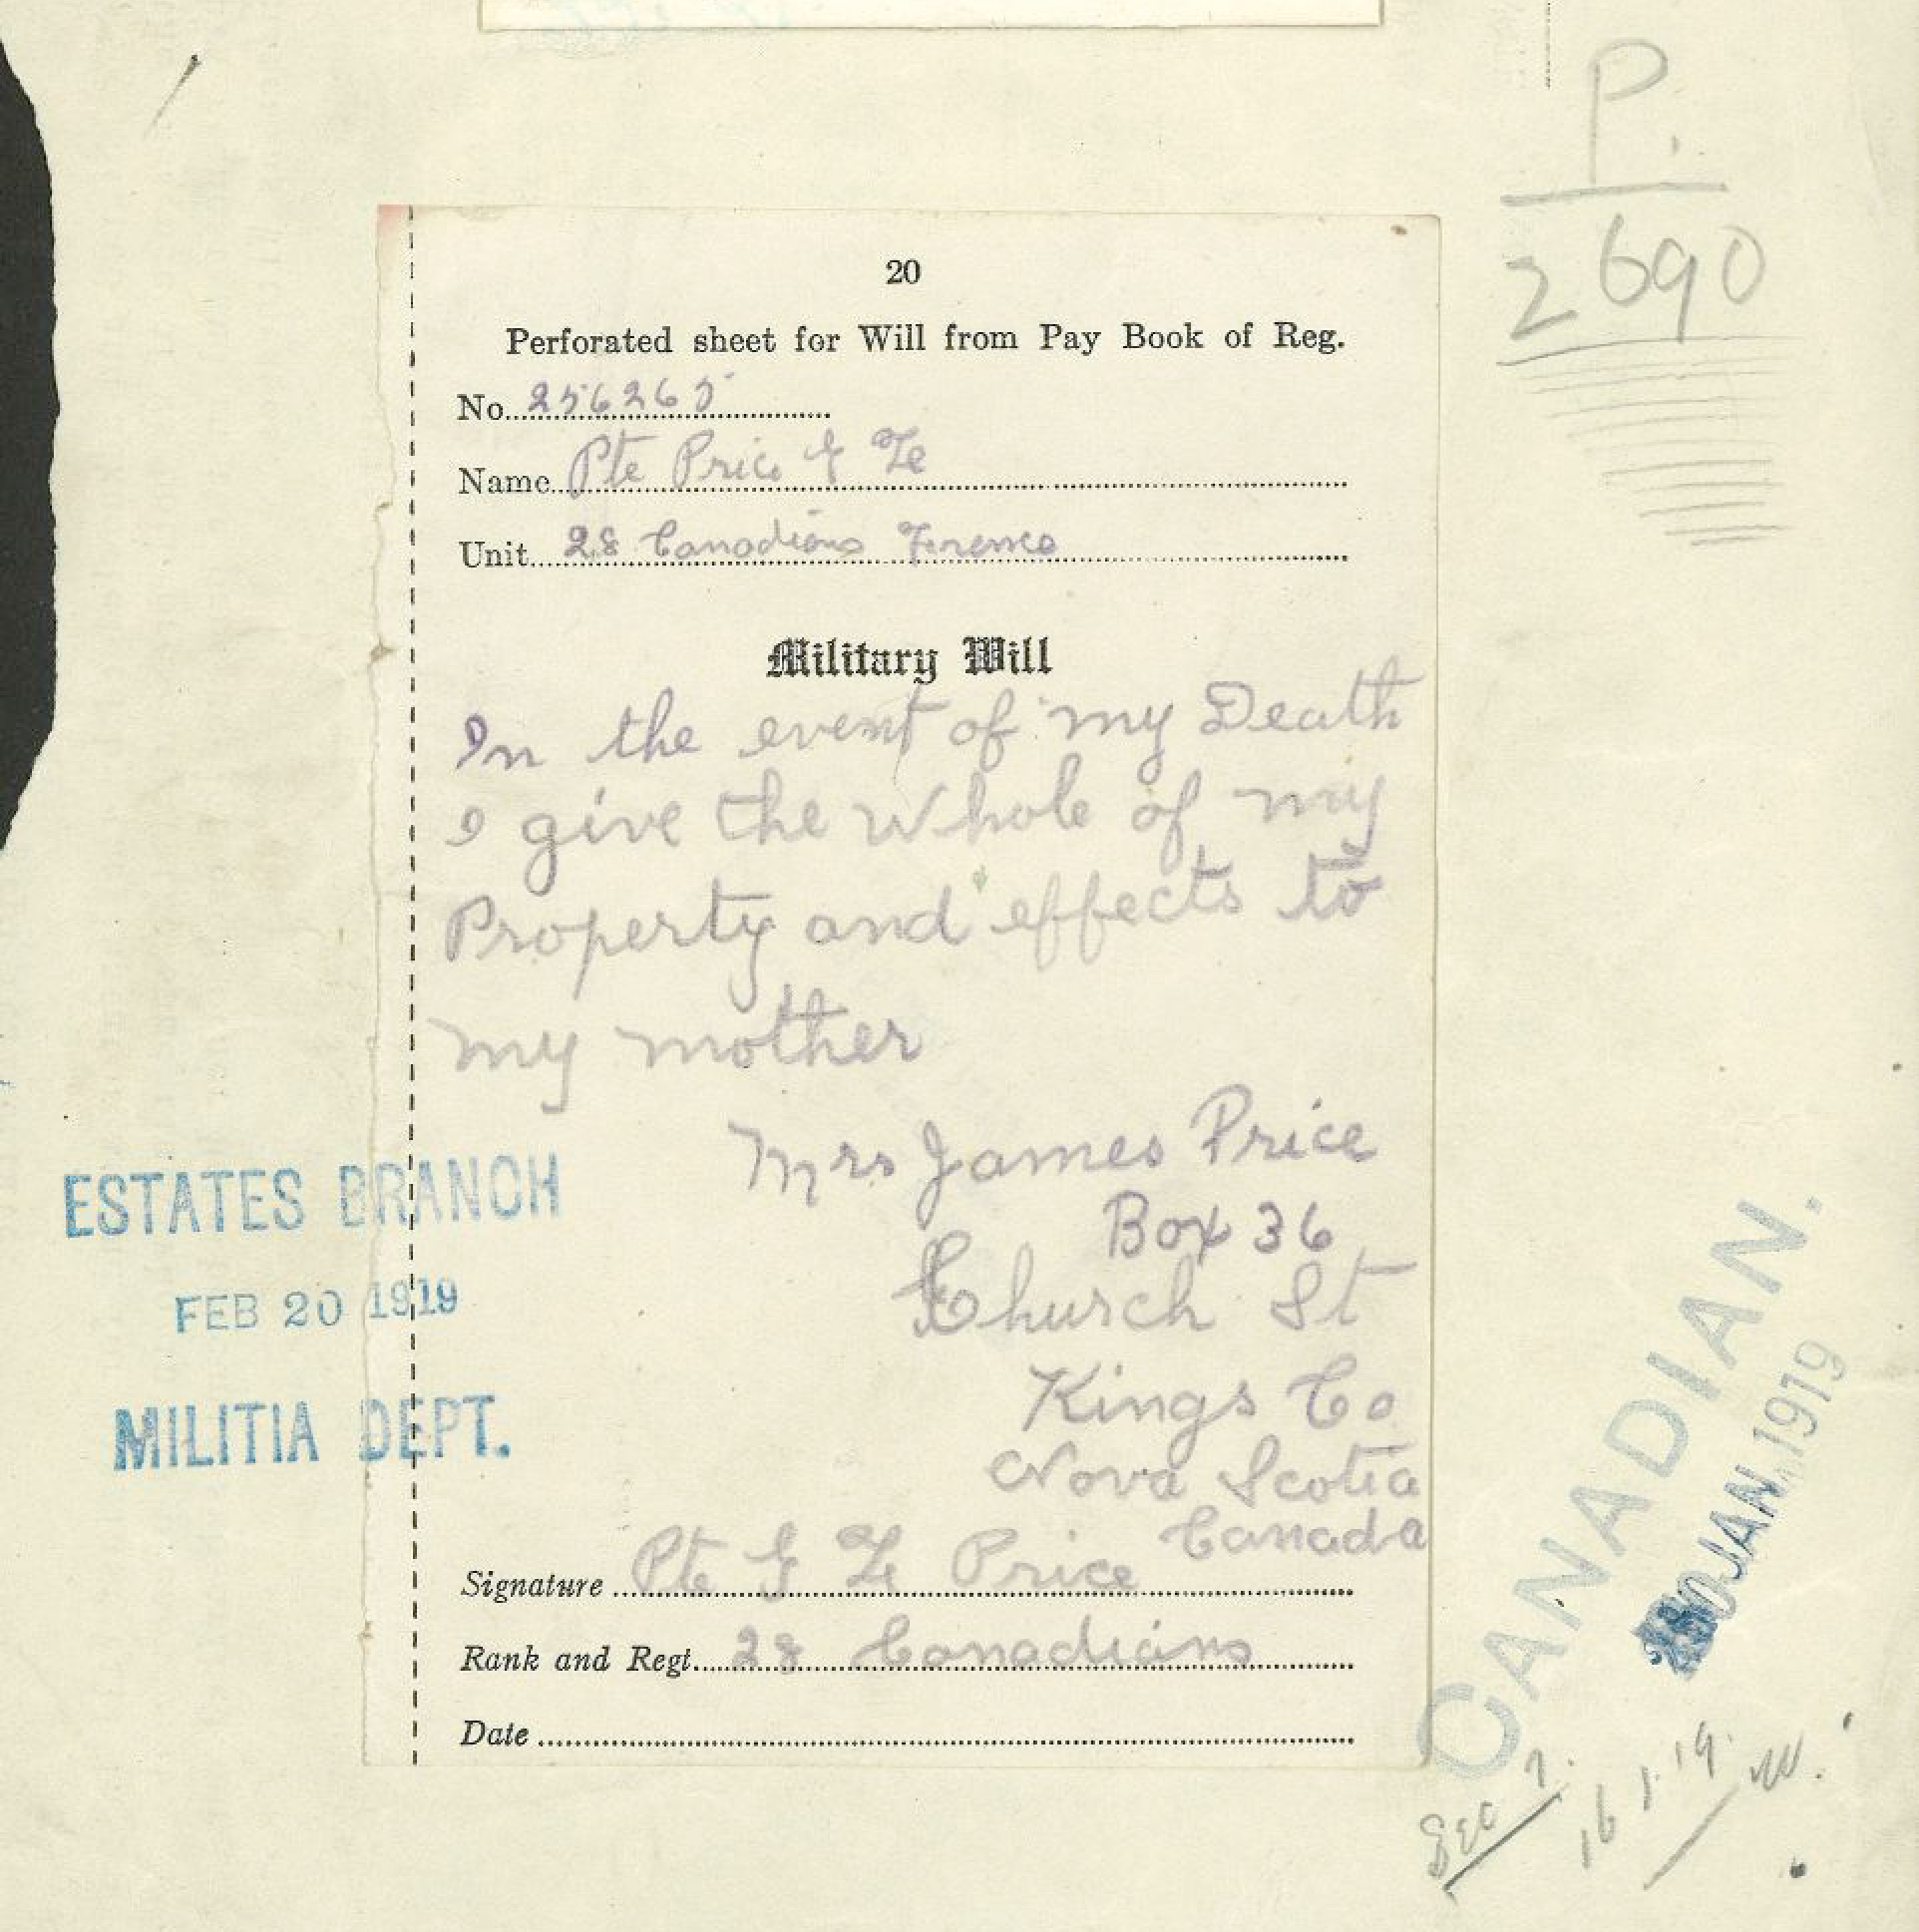 P.
2690
20
Perforated sheet for Will from Pay Book of Reg.
No. 256265
Name Pte Price G L
Unit 28 Canadians France
Military Will
In the event of my Death
I give the whole of my
Property and effects to
my mother
Mrs James Price
Box 36
Church St
Kings Co
Nova Scotia
Canada
Signature Pte G L Price
Rank and Regt. 28 Canadians
Date
ESTATES BRANCH
FEB 20 1919
MILITIA DEPT.
CANADIAN.
JAN 1919
Sec 7.
16.1.19.